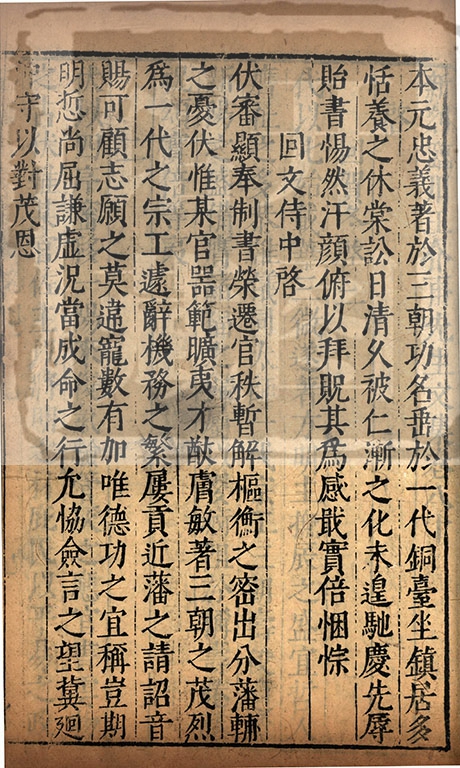 本元忠義著於三朝功名冊於一代銅臺坐鎮居多
恬養之休棠訟日清久被仁漸之化未遑馳慶先辱
貽書惕然汗顔俯以拜貺其為感戢實倍悃悰
回文侍中啓
伏審顯奉制書榮遷官秩暫解樞衡之密出分藩輔
之憂伏惟某官器範曠夷才猷膚敏著三朝之茂烈
為一代之宗工遽辭機務之繁屢貢近藩之請詔音
賜可顧志願之莫違寵數有加唯德功之宜稱豈期
明悊尚屈謙虛況當成命之行允協僉言之望冀迴
守以對茂恩